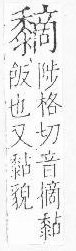 黐
陟格切音摘黏
飯也又黏貌